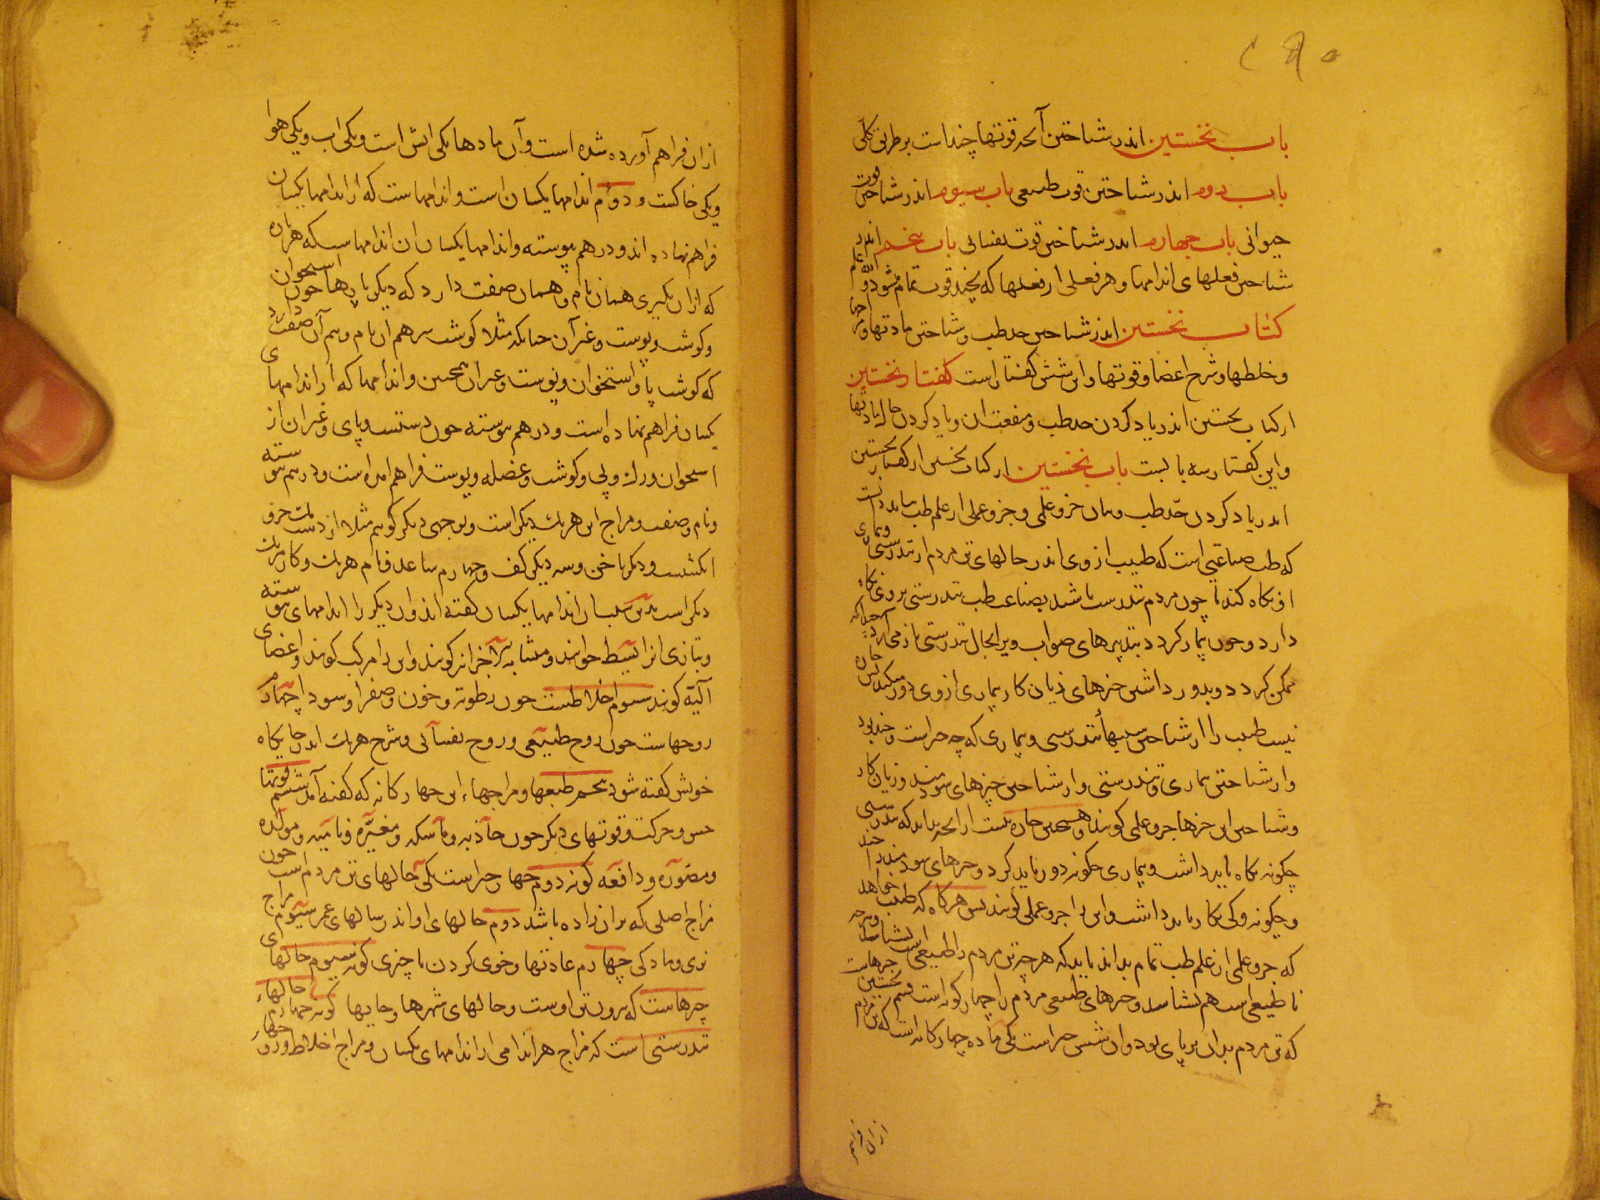 باب نخستین اندر شناختن آنکه قوتها چندست بر طریق کلی
باب دوم اندر شناختن قوت طبیعی باب سیوم اندر شناختن قوت
حیوانی باب چهارم اندر شناختن قوت نفسانی باب پنجم اندر
شناختن فعلهای اندامها و هر فعلی از فعلها که بچند قوت تمام شود والله اعلم
کتاب نخستین اندر شناختن حد طب و شناختن مادتها و مزاجها
و خلطها و شرح اعضا و قوتها و این شش گفتار است گفتار نخستین
از کتاب نخستین اندر یاد کردن حد طب و منفعت آن و یاد کردن حال مادتها
و این گفتار سه بابست باب نخستین از کتاب نخستین از گفتار نخستین
اندر یاد کردن حد طب و بیان جزو علمی و جزو عملی از علم طب بباید دانست
که طب صناعتی است که طبیب از وی اندر حالهای تن مردم از تندرستی و بیماری
او نگاه کند تا چون مردم تندرست باشد بصناعت طب تندرستی بر وی نگاه
دارد و چون بیمار گردد بتدبیرهای صواب ویرا بحال تندرستی باز می آرد چندانکه
ممکن گردد و بدور داشتن چیزهای زیان کار بیماری از وی دور میکند پس چاره
نیست طبیب را از شناختن سببهای تندرستی و بیماری که چه چیز است و چند بود
و از شناختن بیماری و تندرستی و از شناختن چیزهای سودمند و زیان کار
و شناختن این چیزها جزو علمی گویند و همچنین چاره نیست از آنکه بداند که تندرستی
چگونه نگاه باید داشت و بیماری چگونه دور باید کرد و چیزهای سودمند را چند
و چگونه و کی بکار باید داشت و این را جزو عملی گویند پس هر گاه که طبیب خواهد
که جزو علمی از علم طب تمام بداند باید که هر چه تن مردم را طبیعی است بشناسد و هر چه
نا طبیعی است هم بشناسد و چیزهای طبیعی مردم را چهار گونه است قسم نخستین چیزهاست
که تن مردم بدان بر پای بود و آن شش چیز است یکی ماده چهارگانه است که تن مردم
از آن فر
از آن فراهم آورده شده است و آن مادها یکی آتش است و یکی آب و یکی هوا
و یکی خاکست و دوم اندامها یکسان است و اندامهاست که از اندامها یکسان
فراهم نهاده اند و در هم پیوسته و اندامها یکسان آن اندامهاست که هر پاره
که از آن بگیری همان نام و همان صفت دارد که دیگر پارها چون استخوان
و گوشت و پوست و غیر آن چنانکه مثلا گوشت سر هم آن نام و هم آن صفت دارد
که گوشت پا و استخوان و پوست و غیر آن همچنین و اندامها که از اندامهای
یکسان فراهم نهاده است و در هم پیوسته چون دست و پای و غیر آن از
استخوان و رگ و پی و گوشت و عضله و پوست فراهم آمده است و در هم پیوسته
و نام و صفت و مزاج این هر یک دیگر است و بوجهی دیگر گوئیم مثلا از دست یک جزو
انگشتست و دیگر ناخن و سه دیگر کف و چهارم ساعد و نام هر یک و کار هر یک
دیگر است بدین سبب آن اندامها یکسان گفته اند و آن دیگر را اندامهای پیوسته
و بتازی آنرا بسیط خوانند و متشابه الاجزا نیز گویند و این را مرکب گویند و اعضای
آلیه گویند سیوم اخلاطست چون رطوبت و خون و صفرا و سودا چهارم
روحهاست چون روح طبیعی و روح نفسانی و شرح هر یک اندر جایگاه
خویش گفته شود پنجم طبعها و مزاجهاء این چهارگانه که گفته آمد ششم قوتها
حس و حرکت و قوتهای دیگر چون جاذبه و ماسکه و مغیره و نامیه و مولده
و مصوره و دافعه گونه دوم چهار چیز است یکی حالهای تن مردم است چون
مزاج اصلی که بر آن زاده باشد دوم حالهای او اندر سالهای عمر سیوم مزاج
نری و مادگی چهارم عادتها و خوی کردن با چیزی گونه سیوم حالهای
چیزهاست که بیرون تن اوست و حالهای شهرها و جایها گونه چهارم حالهاء
تندرستی است که مزاج هر اندامی از اندامهای یکسان و مزاج اخلاط و روحها